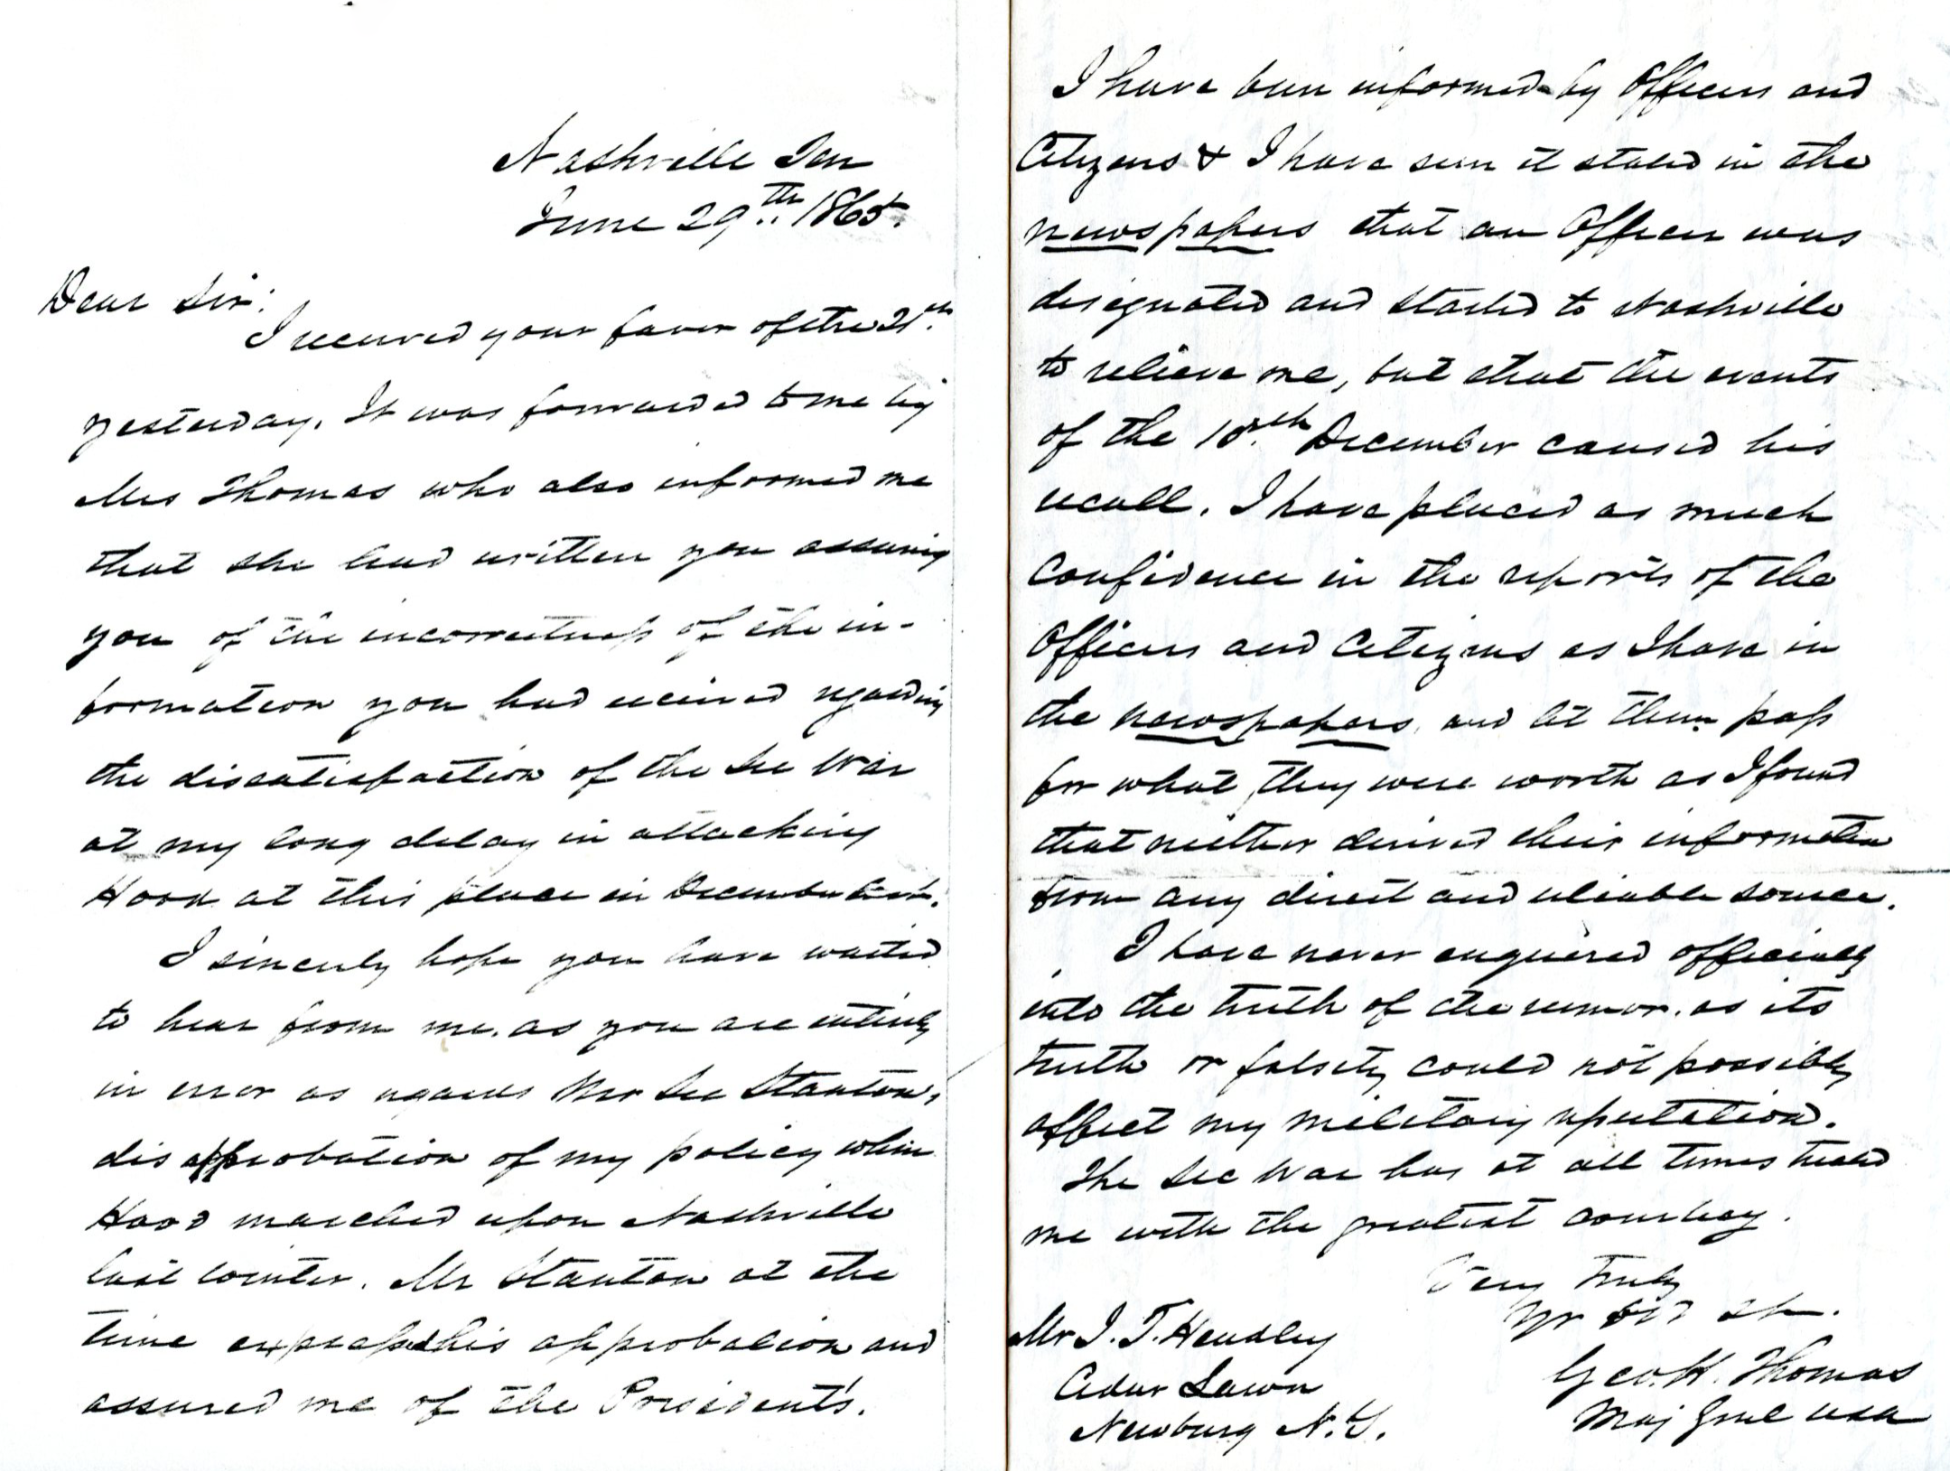 Nashville Ten
June 29th 1865.
Dear Sir:
I received your favor of the 21st
yesterday. It was forwarded to me by
Mrs Thomas who also informed me
that she had written you assuring
you of the incorrectness of the in-
formation you had received regarding
the dissatisfaction of the Sec War
at my long delay in attacking
Hood at this place in December last.
I sincerely hope you have waited
to hear from me. as you are entirely
in error as regards Mr Sec Stanton,
disapprobation of my policy when
Hood marched upon Nashville
last winter. Mr Stanton at the
time expressed his approbation and
assured me of the President's.
I have been informed by Officers and
Citizens & I have seen it stated in the
newspapers that an Officer was
designated and started to Nashville
to relieve me, but that the events
of the 15th December caused his
recall. I have placed as much
Confidence in the reports of the
Officers and Citizens as I have in
the newspapers, and let them pass
for what they were worth as I found
that neither derived their information
from any direct and reliable source.
I have never enquired officially
into the truth of the rumor. as its
truth or falsity could not possibly
affect my military reputation.
The Sec War has at all times treated
me with the greatest courtesy.
Very Truly
Yr Obd St.
Geo. H. Thomas
Maj Genl USA
Mr J. T. Headley
Cedar Lawn
Newburg N.Y.